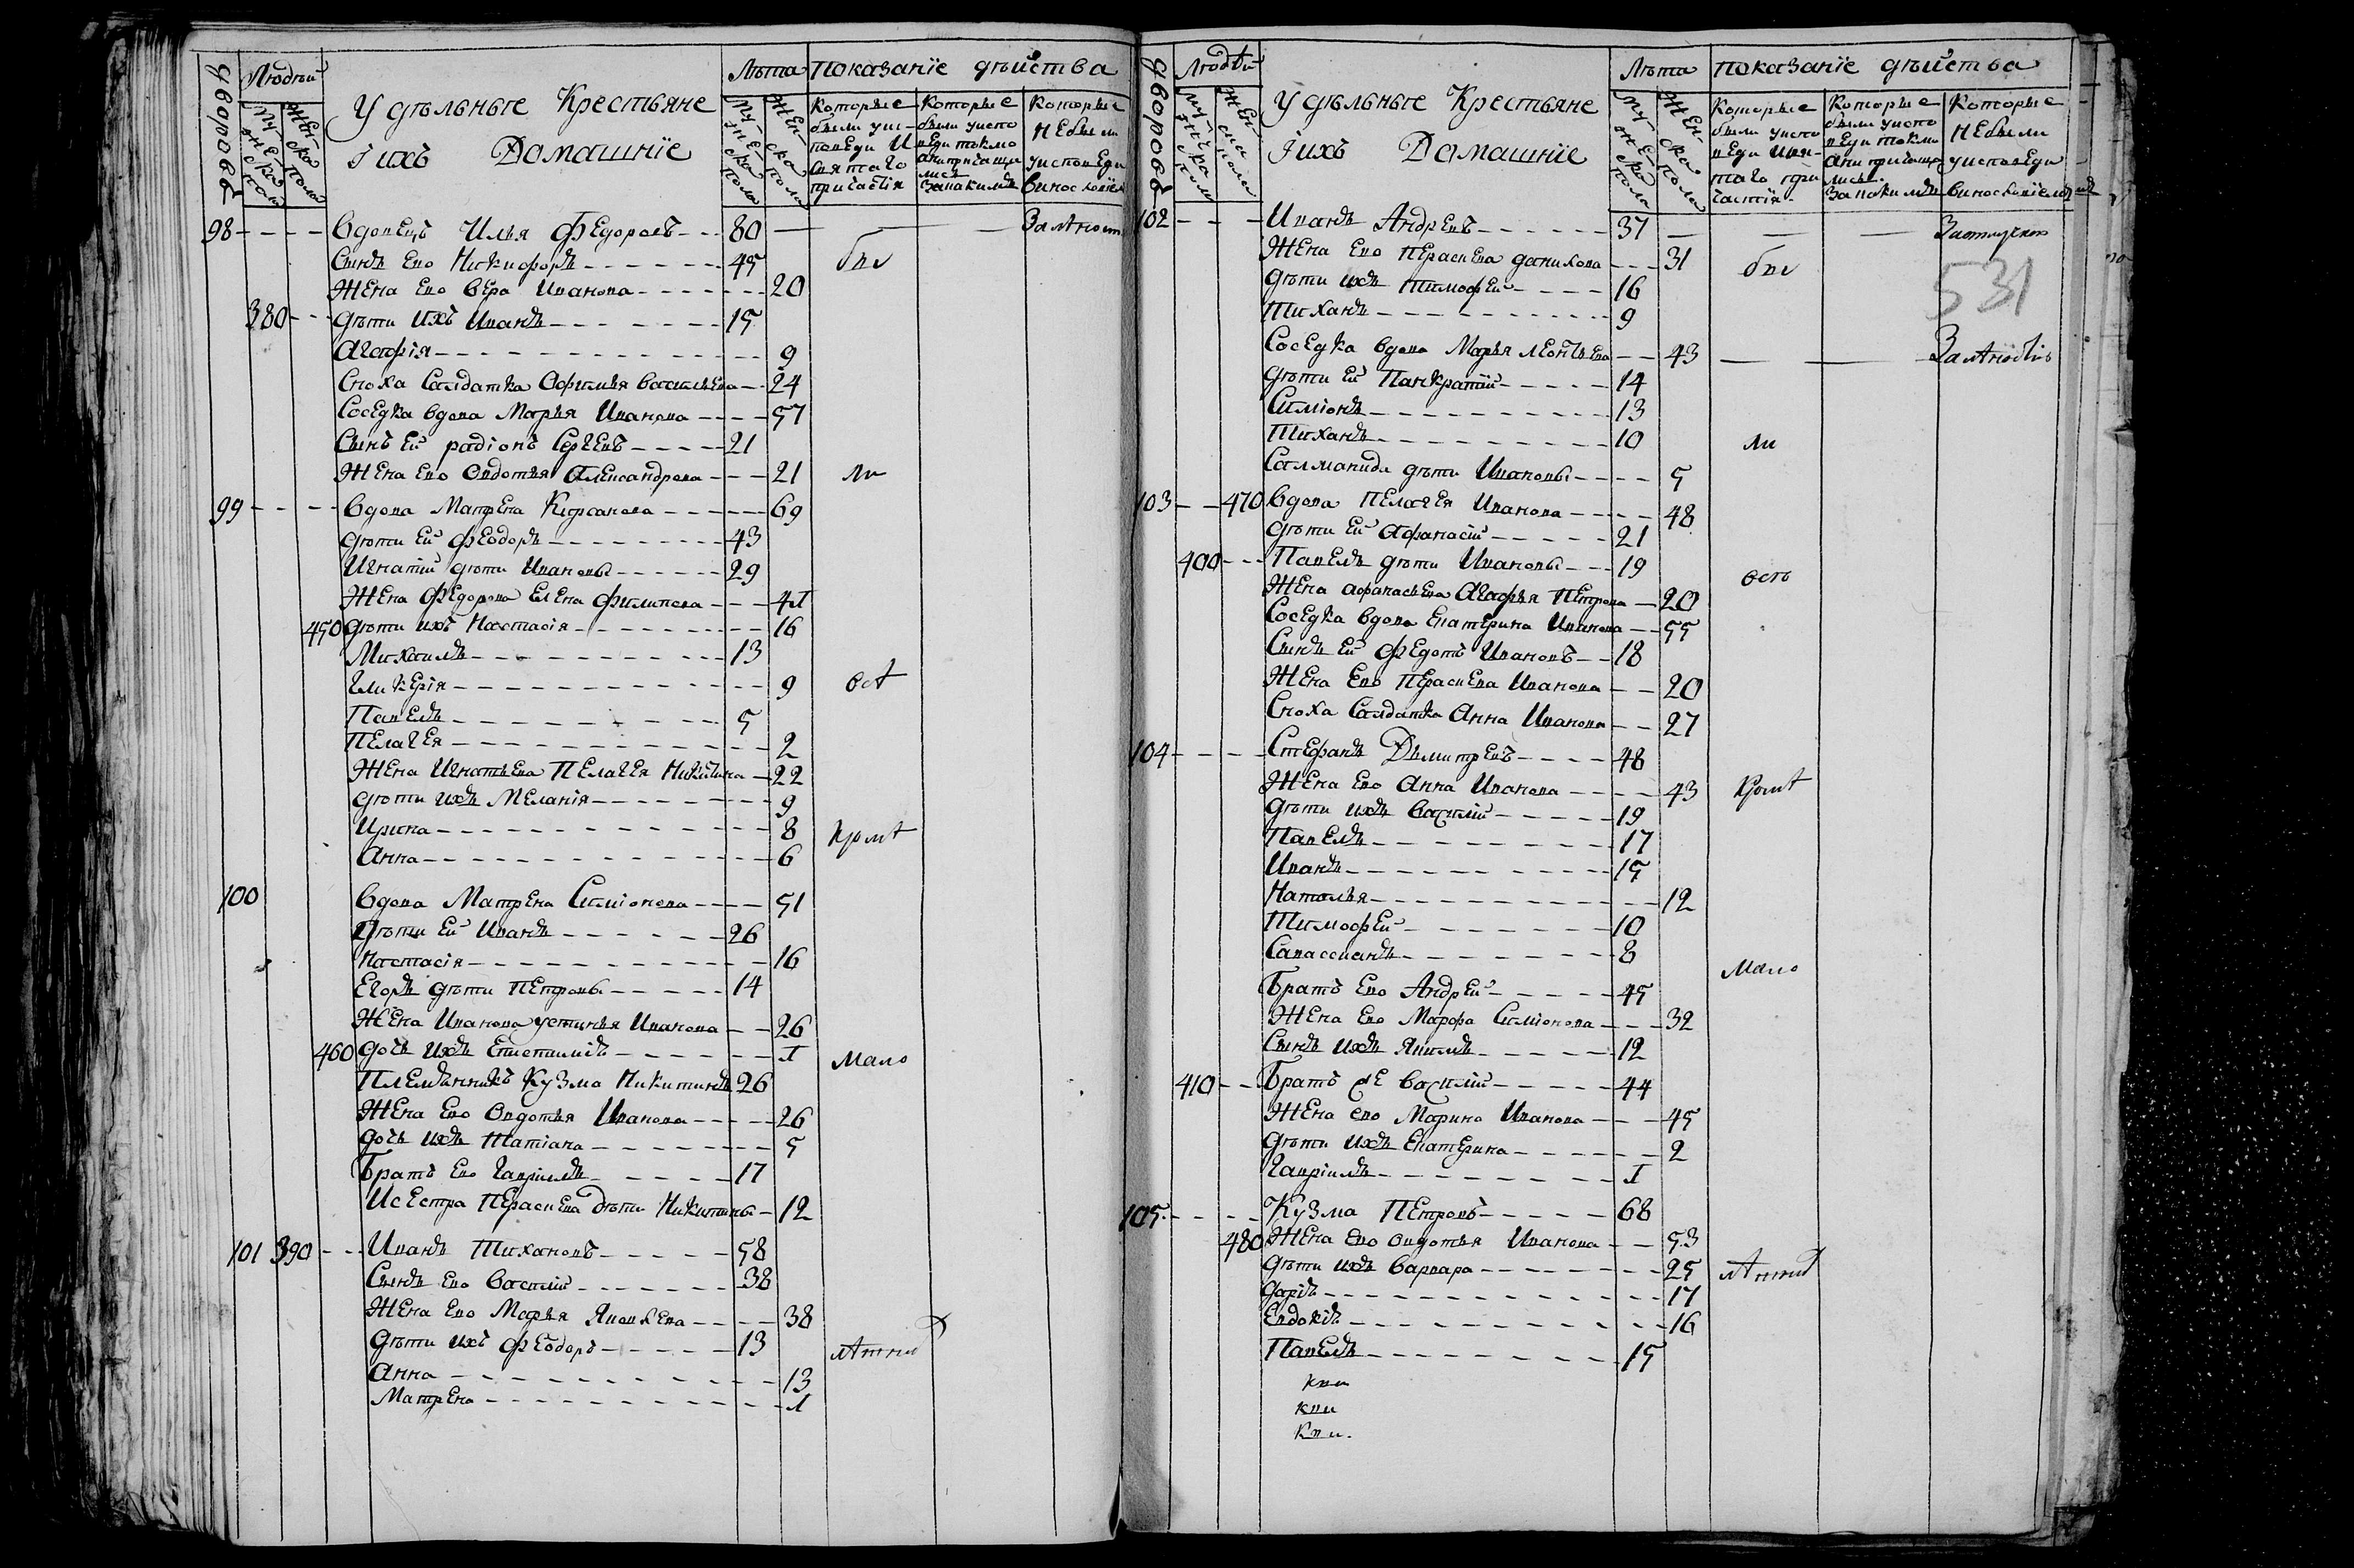 дворовъ
Людѣй
Мужеска пола
Женска пола
Удѣльные Крестьяне
Iихъ Домашнiе
Лѣта
Мужеска пола
Женска пола
показанiе дѣйства
Которые были уисповеди И святаго причастiя
Которые были уисповеди токмо анипричащились Запакимъ
Которые небыли уисповеди
98 Вдовецъ Илья Федоровъ 80
Сынъ Ево Никифоръ 45 бы
Жена Ево Вера Иванова 20
380 Дѣти Ихъ Иванъ 15
Агафiя 9
Сноха Салдатка Офимья Васильева 24
Соседка вдова Марья Иванова 57
Сынъ Ей радiонъ Сергеевъ 21
Жена Ево Овдотья Александрова 21 ли
99 Вдова Матрена Кирсанова 69
Дѣти Ей Феодоръ 43
Игнатiй дѣти Ивановы 29
Жена Федорова Елена Филипова 41
450 Дѣти ихъ Настасiя 16
Михаилъ 13
Гликерiя 9 всѣ
Павелъ 5
Пелагея 2
Жена Игнатьева Пелагея Никитина 22
Дѣти ихъ Меланiя 9
Ирина 8 кромѣ
Анна 6
100 Вдова Матрена Симiонова 51
Дѣти Ей Иванъ 26
Настасiя 16
Егоръ дѣти Петровы 14
Жена Иванова устинья Иванова 26
460 Дочь ихъ 1 мало
Племянникъ Кузма Никитинъ 26
Жена Ево Овдотья Иванова 26
Дочь ихъ Татiана 5
Братъ Ево Гаврiилъ 17
Исестра Пераскева дѣти Никитины 12
101 390 Иванъ Тихановъ 58
Сынъ Ево Василiй 38
Жена Ево Марья Яковлева 38
Дѣти ихъ Феодоръ 13 лѣтни
Анна 13
Матрена 1
дворовъ
Людѣй
Мужеска пола
Женска пола
Удѣльные Крестьяне
Iихъ Домашнiе
Лѣта
Мужеска пола
Женска пола
показанiе дѣйства
Которые были уисповеди Исвятаго причастiя
Которые были уисповеди токмо анипричащились Запакимъ
Которые небыли уисповеди
102 Иванъ Андревъ 37
531
Жена Ево Пераскева данилова 31 бы
Дѣти ихъ Тимофей 16
Тиханъ 9
Соседка вдова Марья Леонтьева 43
Дѣти Ей Панкратiй 14
Симiонъ 13
Тиханъ 10 ли
дѣти Ивановы 5
103 470 Вдова Пелагея Иванова 48
Дѣти Ей Афанасiй 21
400 Павелъ дѣти Ивановы 19 всѣ
Жена афанасьева Агафья Петрова 20
Соседка вдова Екатерина Иванова 55
Сынъ Ей Федотъ Ивановъ 18
Жена Ево Пераскева Иванова 20
Сноха Салдатка Анна Иванова 27
104 Стефанъ Дьмитревъ 48
Жена Ево Анна Иванова 43 кромѣ
Дѣти ихъ Василiй 19
Павелъ 17
Иванъ 15
Наталья 12
Тимофей 10
8 мало
Братъ Ево Андрей 45
Жена Ево Марфа Симiонова 32
Сынъ ихъ Якимъ 12
410 Братъ же Василiй 44
Жена ево Марина Иванова 45
Дѣти ихъ Екатерина 2
Гаврiилъ 1
105 Кузма Петровъ 68
480 Жена Ево Овдотья Иванова 53
Дѣти ихъ Варвара 25 лѣтни
Дарiъ 17
Евдокiъ 16
Павелъ 15